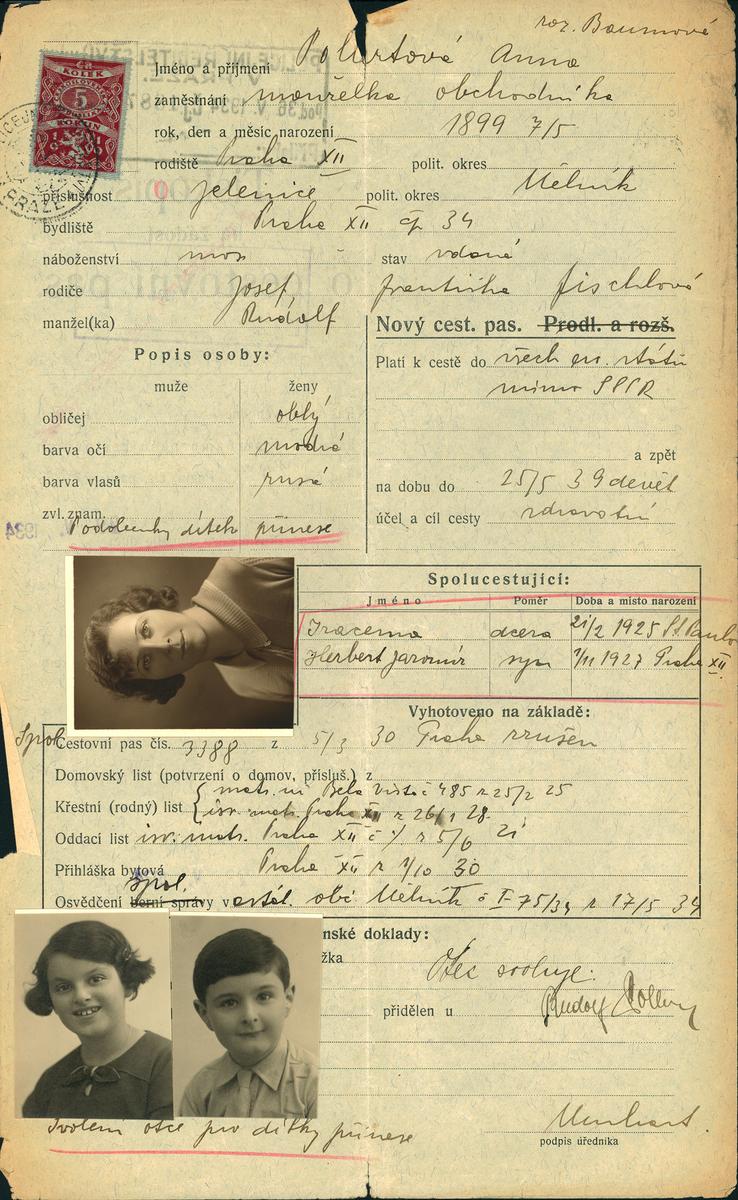 roz. Baumová
Jméno a příjmení Anna
zaměstnání manželka obchodníka
rok, den a měsíc narození 1899 7/5
rodiště Praha XII polit. okres
příslušnost Jelenice polit. okres Mělník
bydliště Praha XII čp 34
náboženství mos stav vdaná
rodiče Josef, Františka Fischlová
manžel(ka) Rudolf
Nový cest. pas. Prodl. a rozš.
Platí k cestě do všech ev. států
mimo SSSR
a zpět
na dobu do 25/5 39 devět
účel a cíl cesty zdravotní
Popis osoby:
muže ženy
obličej oblý
barva očí modrá
barva vlasů rusá
zvl. znam.
Podobenky dítek přinese
KOLEK
5
KORUN
Spolucestující:
Jméno Poměr Doba a místo narození
Iracema dcera 21/2 1925 St. Paulo
Herbert Jaromír syn 1927 Praha XII.
Vyhotoveno na základě:
Cestovní pas čís. 3388 z 5/3 30 Praha zrušen
Domovský list (potvrzení o domov. přísluš.) z
Bela Vista č 485 z 25/2 25
Křestní (rodný) list isr. matr. Praha XII z 26/1 28.
Oddací list isr. matr. Praha XII č z 5/6 21
Přihláška bytová Praha XII z 1/10 30
Spol.
Osvědčení berní správy v obč Mělník č I-75/34 z 17/5 34
nské doklady:
žka
Otec svoluje.
přidělen u Rudolf
Svolení otce pro dítky přinese
podpis úředníka